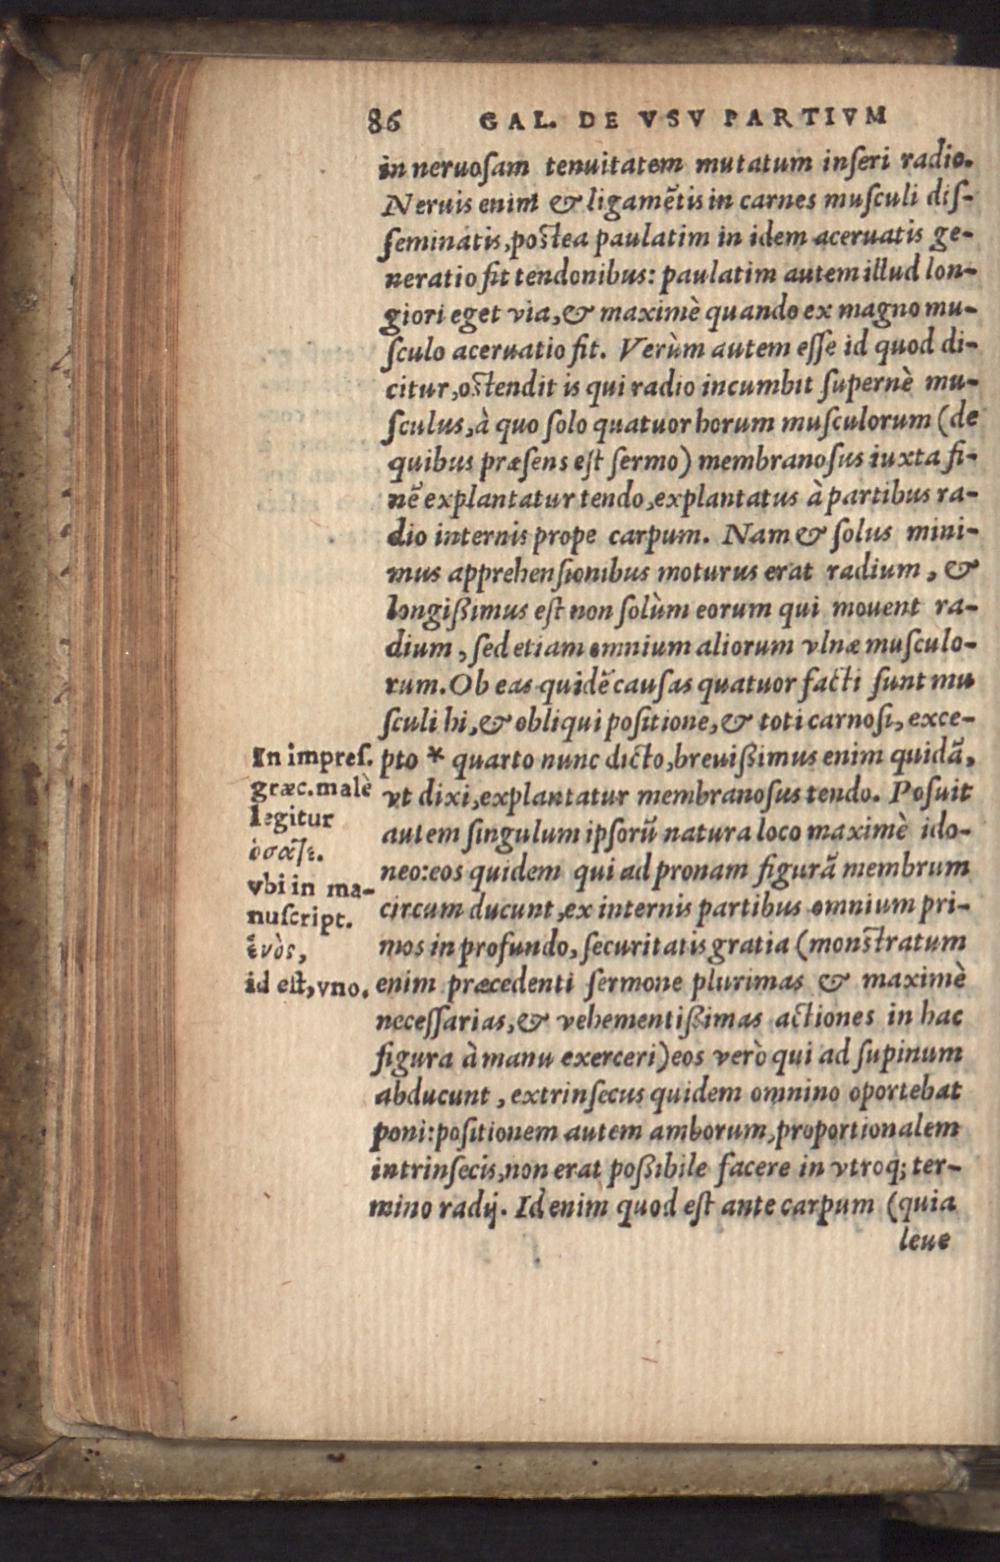 86 GAL. DE VSV PARTIVM
in neruoſam tenuitatem mutatum inſeri radio.
Neruis enim & ligamẽtis in carnes muſculi diſ-
ſeminatis, poſtea paulatim in idem aceruatis ge-
neratio fit tendonibus: paulatim autem illud lon-
giori eget via, & maximè quando ex magno mu-
ſculo aceruatio fit. Verùm autem eſſe id quod di-
citur, oſtendit is qui radio incumbit ſupernè mu-
ſculus, à quo ſolo quatuor horum muſculorum (de
quibus præſens eſt ſermo) membranoſus iuxta fi-
nẽ explantatur tendo, explantatus à partibus ra-
dio internis prope carpum. Nam & ſolus mini-
mus apprehenſionibus moturus erat radium, &
longißimus eſt non ſolùm eorum qui mouent ra-
dium, ſed etiam omnium aliorum vlnæ muſculo-
rum. Ob eas quidẽ cauſas quatuor facti ſunt mu
ſculi hi, & obliqui poſitione, & toti carnoſi, exce-
pto * quarto nunc dicto, breuißimus enim quidã,
vt dixi, explantatur membranoſus tendo. Poſuit
autem ſingulum ipſorũ natura loco maximè ido-
neo: eos quidem qui ad pronam figurã membrum
circum ducunt, ex internis partibus omnium pri-
mos in profundo, ſecuritatis gratia (monſtratum
enim præcedenti ſermone plurimas & maximè
neceſſarias, & vehementißimas actiones in hac
figura à manu exerceri) eos verò qui ad ſupinum
abducunt, extrinſecus quidem omnino oportebat
poni: poſitionem autem amborum, proportionalem
intrinſecis, non erat poßibile facere in vtroq; ter-
mino radij. Id enim quod eſt ante carpum (quia
leue
In impreſ.
græc. malè
legitur
vbi in ma-
nuſcript.
ἑνὸς,
id eſt, vno.